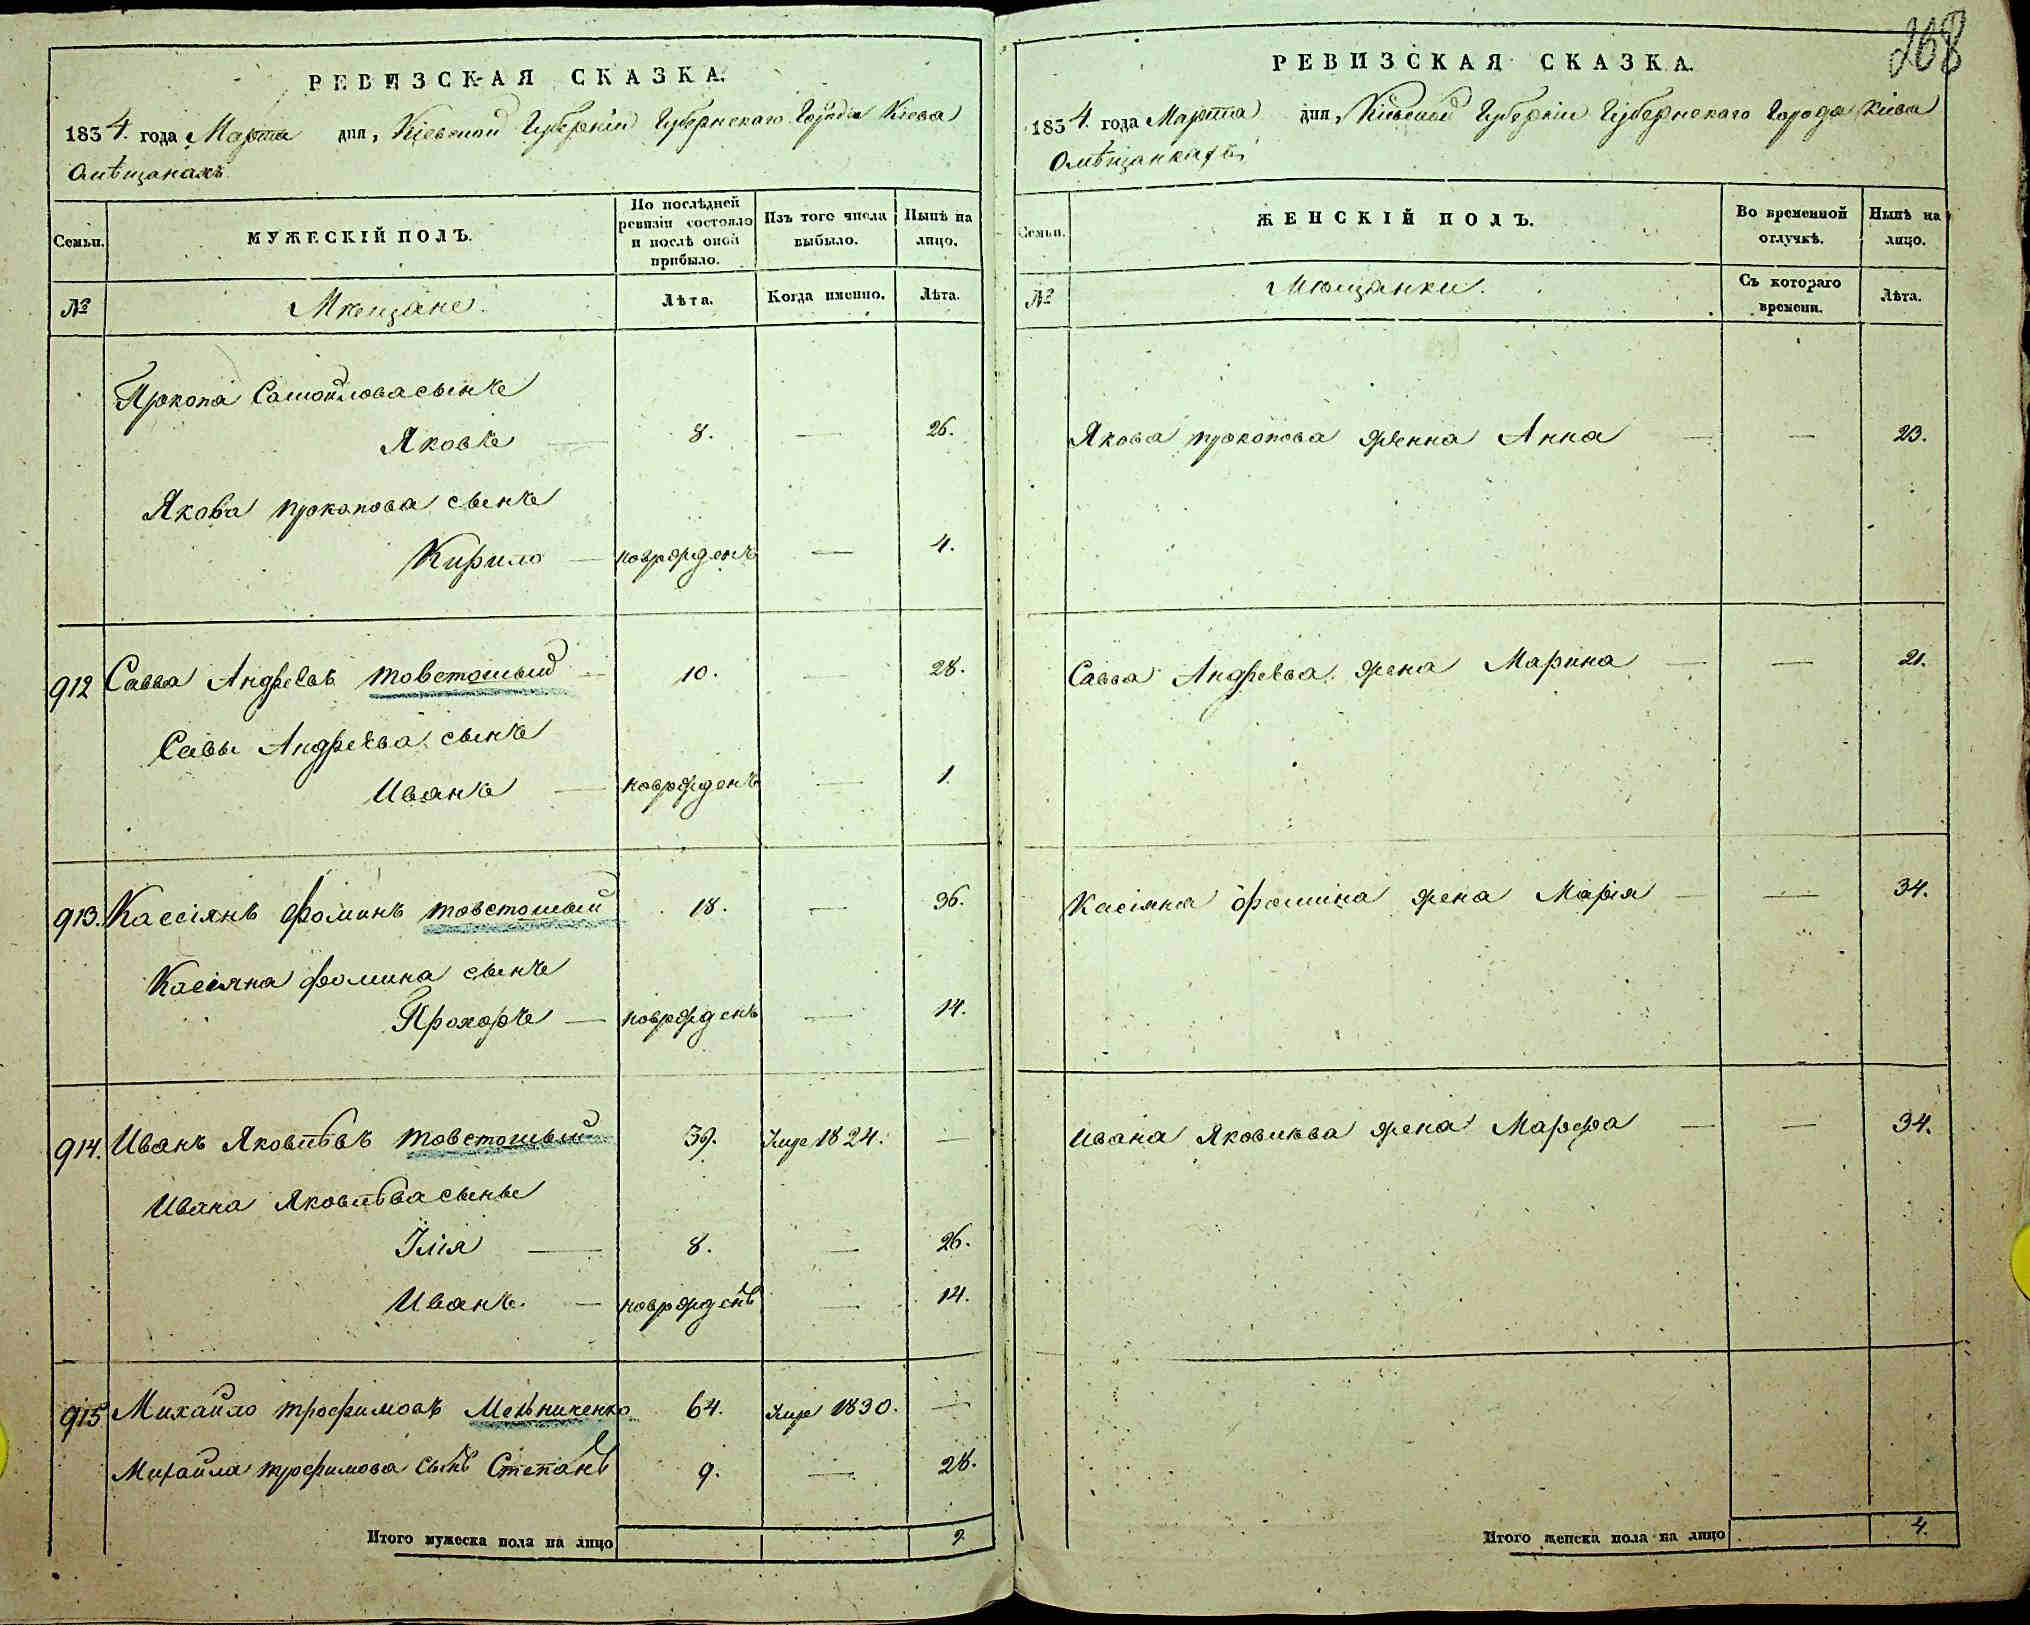 РЕВИЗСКАЯ СКАЗКА.
1834. года Марта дня, Кіевской Губерніи Губернскаго Города Кіева
Омѣщанахъ
Семьи.
МУЖЕСКІЙ ПОЛЪ.
По послѣдней ревизіи состояло и послѣ оной прибыло.
Изъ того числа выбыло.
Нынѣ на лицо.
№
Мѣщане.
Лѣта.
Когда именно.
Лѣта.
Прокопа Самойлова сынъ
Яковъ — 8. — 26.
Якова прокопова сынъ
Кирило — новрожденъ — 4.
912 Савва Андреевъ товстошый — 10. — 28.
Савы Андреева сынъ
Иванъ — новрожденъ — 1.
913. Кассіянъ Фоминъ товстошый 18. — 36.
Касіяна Фомина сынъ
Прохоръ — новрожденъ — 14.
914. Иванъ Яковлѣвъ товстошый 39. Умре 1824. —
Ивана Яковлѣва сыны
Ілія — 8. — 26.
Иванъ. — новрожденъ — 14.
915 Михайло трофимовъ Мельниченко 64. Умре 1830. —
Михайла трофимова сынъ Степанъ 9. — 28.
Итого мужеска пола на лицо 9
268
РЕВИЗСКАЯ СКАЗКА.
1834. года Марта дня, Кіевской Губерніи Губернскаго Города Кіева
Омѣщанкахъ
Семьи.
ЖЕНСКІЙ ПОЛЪ.
Во временной отлучкѣ.
Нынѣ на лицо.
№
Мѣщанки.
Съ котораго времени.
Лѣта.
Якова прокопова женна Анна — — 23.
Савва Андреева жена Марина — — 21.
Касіяна Фомина жена Марія — — 34.
Ивана Яковлѣва жена Марфа — — 34.
Итого женска пола на лицо 4.